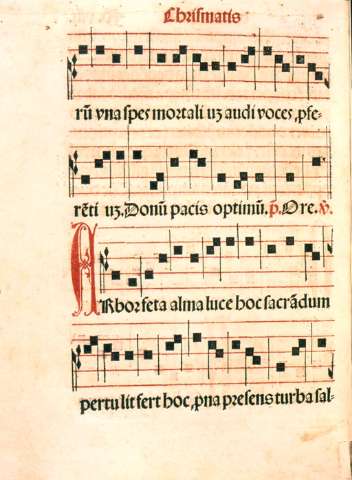 Chrismatis
rū vna spes mortaliuʒ audi voces, ꝓfe-
rētiuʒ. Donū pacis optimū. p̄. O re. ꝟ.
ARbor feta alma luce hoc sacrādum
pertulit fert hoc, ꝓna presens turba sal-